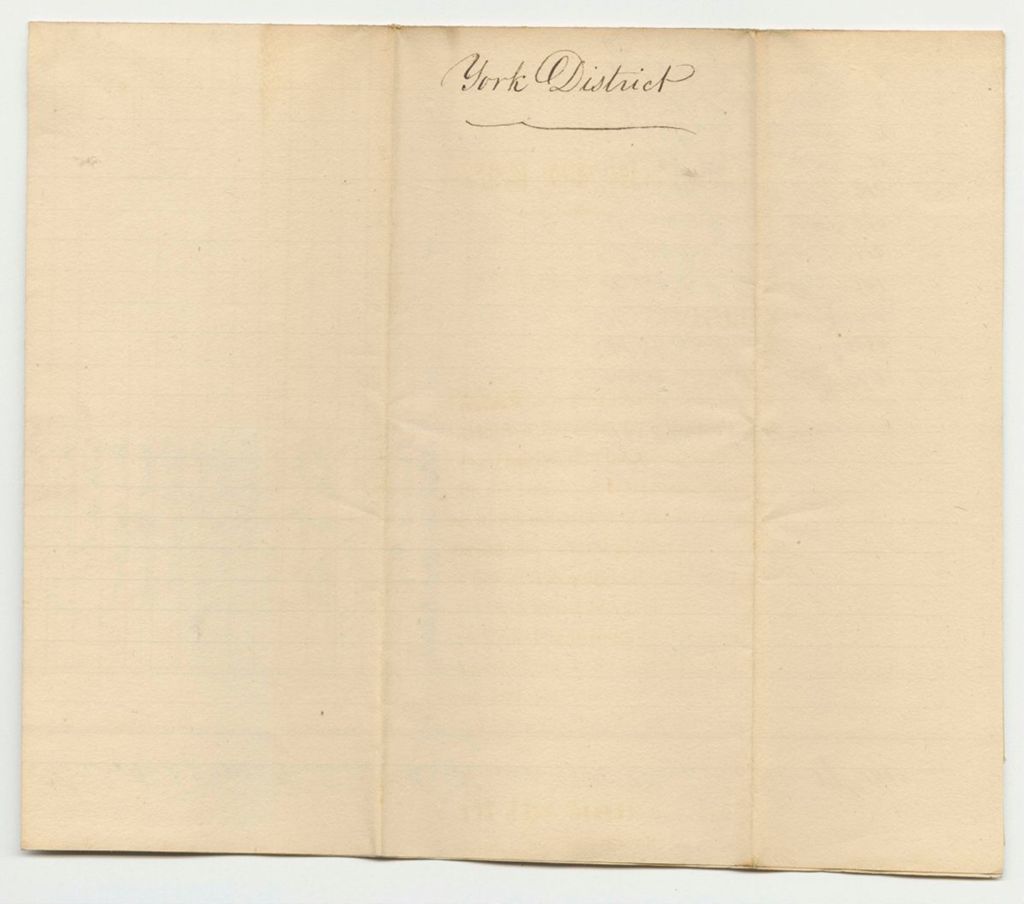 York District